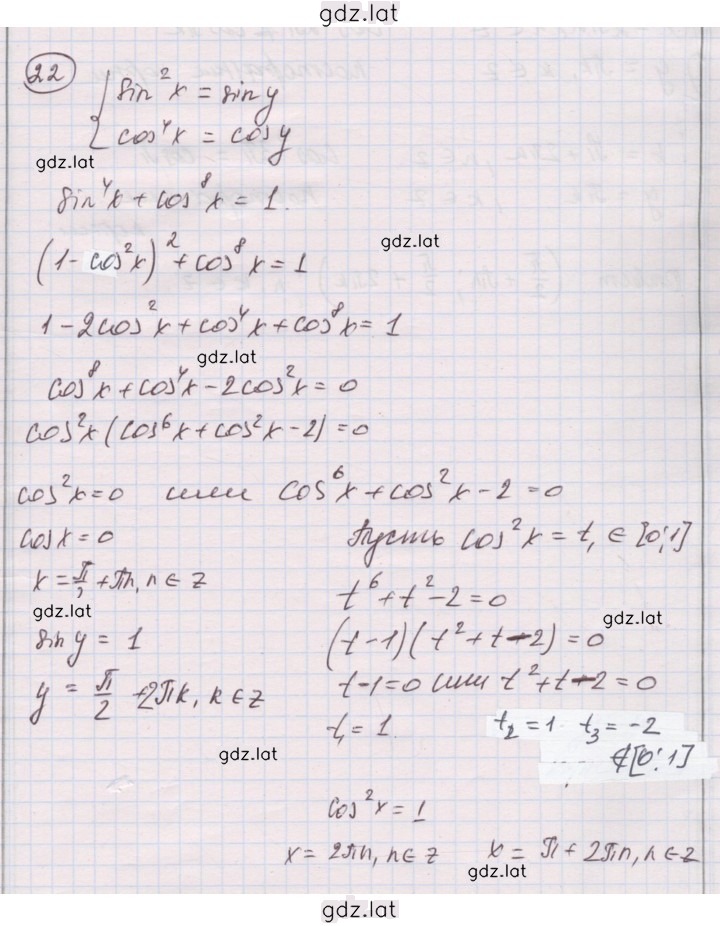 gdz.lat
22
sin²x = sin y
cos⁴x = cos y
gdz.lat
sin⁴x + cos⁸x = 1.
gdz.lat
(1 - cos²x)² + cos⁸x = 1
1 - 2cos²x + cos⁴x + cos⁸x = 1
gdz.lat
cos⁸x + cos⁴x - 2cos²x = 0
cos²x (cos⁶x + cos²x - 2) = 0
cos²x = 0 или cos⁶x + cos²x - 2 = 0
cos x = 0 Пусть cos²x = t, ∈ [0; 1]
x = π/2 + πn, n ∈ z
t⁶ + t² - 2 = 0
gdz.lat
gdz.lat
sin y = 1 (t - 1)(t² + t - 2) = 0
y = π/2 + 2πk, k ∈ z t - 1 = 0 или t² + t - 2 = 0
t₁ = 1. t₂ = 1 t₃ = -2
gdz.lat
∉ [0; 1]
cos²x = 1
x = 2πn, n ∈ z x = π + 2πn, n ∈ z
gdz.lat
gdz.lat